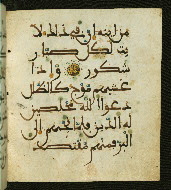 من اياته ان في ذلك لا
يت لكل صبار
شكور واذا
غشيهم موج كالظلل
دعوا الله مخلصين
له الدين فلما نجيهم الى
البر فمنهم مقتصد